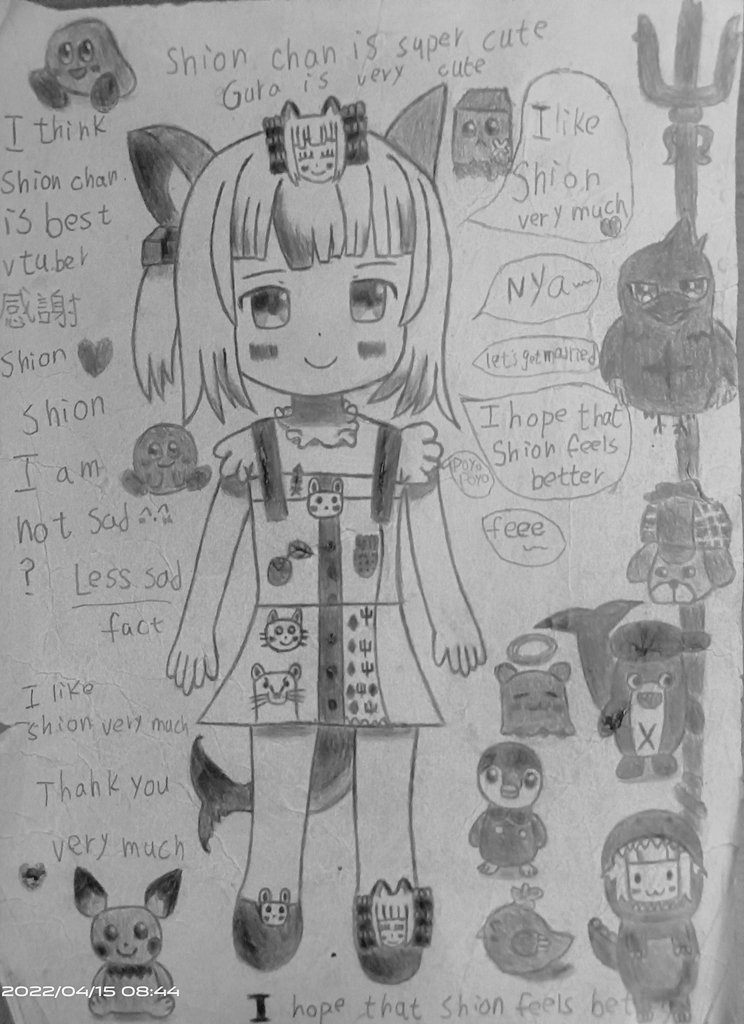 Shion chan is super cute
Gura is very cute
I think
Shion chan
is best
vtuber
感謝
Shion
Shion
I am
not sad^^
?
Less sad
fact
I like
Shion very much
Thank you
very much
I like
Shion
very much
Nya~
let's get married
I hope that
Shion feels
better
poyo
poyo
feee
X
2022/04/15 08:44
I hope that Shion feels